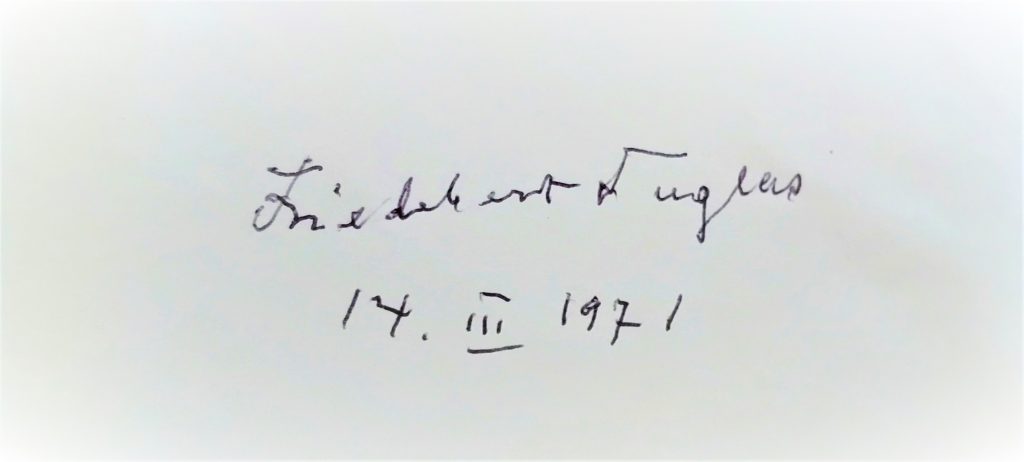 Friedebert Tuglas
14. III 1971